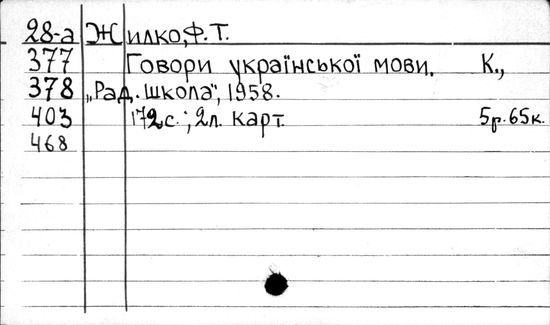 28-а Жилко, Ф.Т.
377 Говори української мови. К.,
378 „Рад. школа", 1958.
403 172с.; 2л. карт. 5р.65к.
468